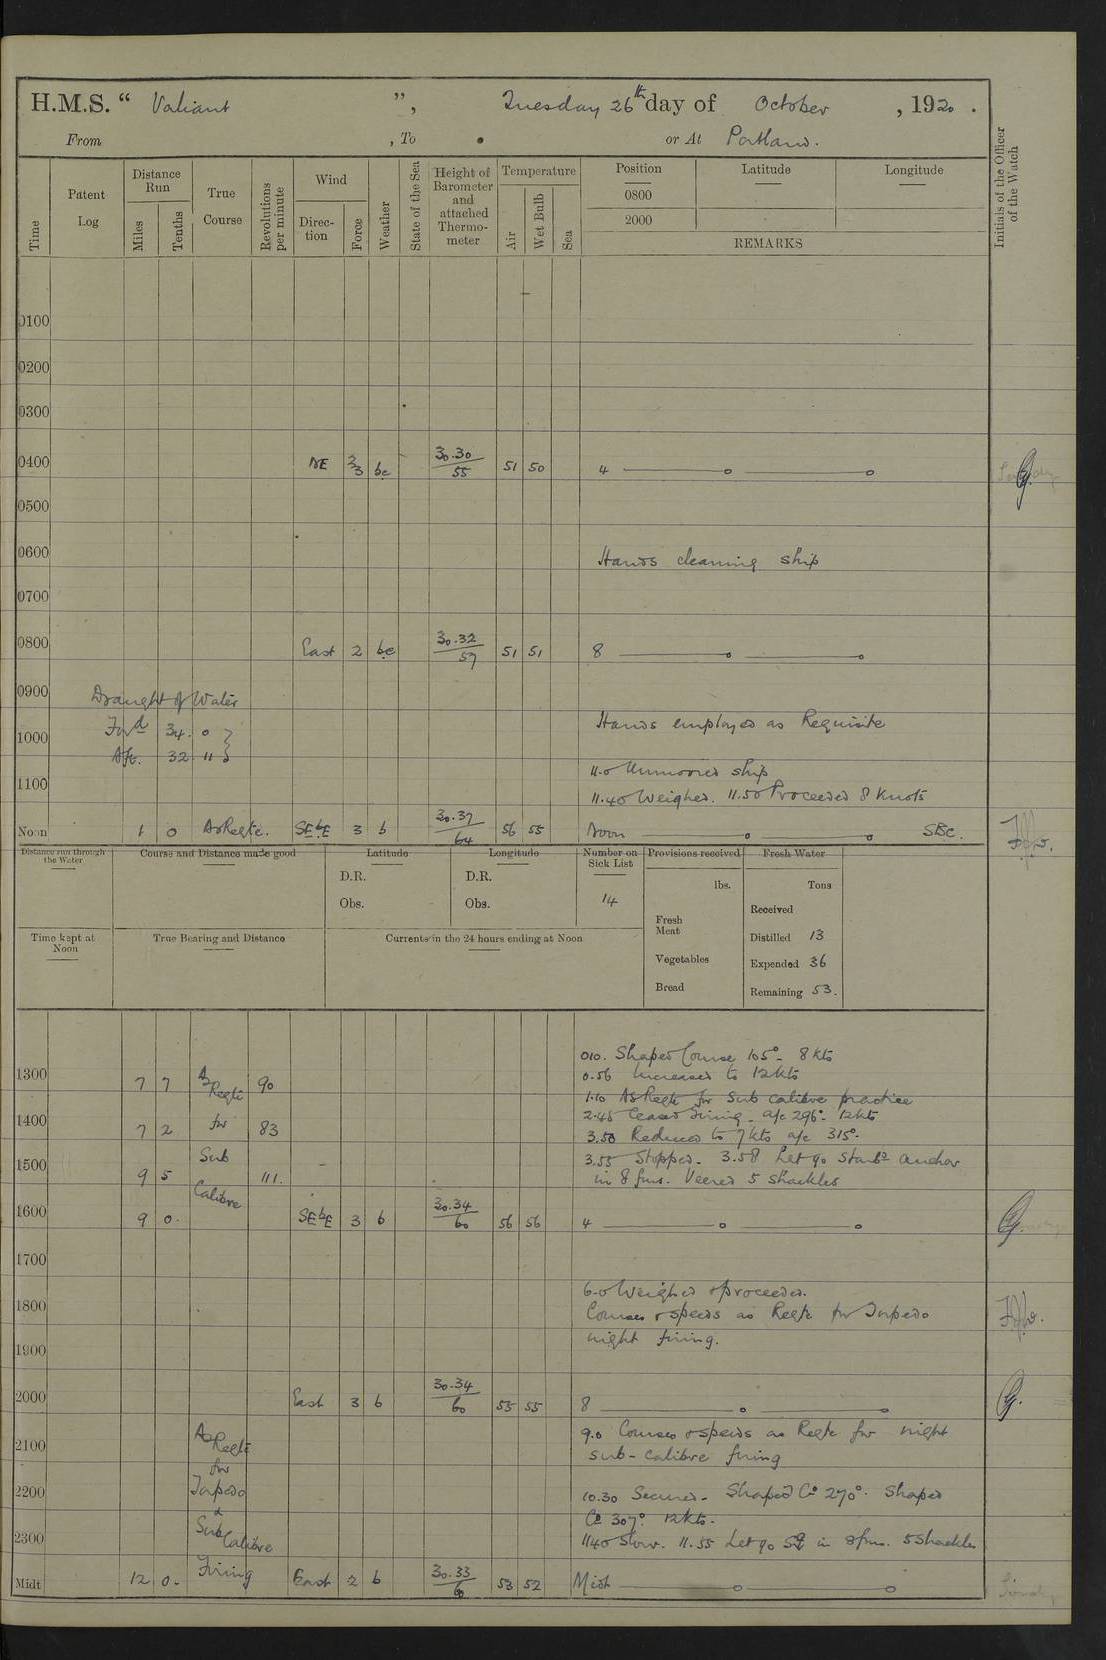 H.M.S. “ Valiant ”, Tuesday 26th day of October , 1920 .
From , To . or At Portland.
Time
Patent Log
Distance Run
Miles
Tenths
True Course
Revolutions per minute
Wind
Direc-tion
Force
Weather
State of the Sea
Height of Barometer and attached Thermo-meter
Temperature
Air
Wet Bulb
Sea
Position
Latitude
Longitude
0800
2000
REMARKS
Initials of the Officer of the Watch
0100
0200
0300
0400 NE 2/3 bc 30.30/55 51 50 4
0500
0600 Hands cleaning ship
0700
0800 East 2 bc 30.32/57 51 51 8
0900 Draught of Water
Hands employed as Requisite
1000 Forwd 34. 0
Aft. 32 11
11.0 Unmoored ship
1100
11.40 Weighed. 11.50 Proceeded 8 Knots
Noon 1 0 As Reqte. SEbE 3 b 30.37/64 56 55 Noon SBC.
Distance run through the Water
Course and Distance made good
Latitude
Longitude
Number on Sick List
Provisions received
Fresh Water
D.R. D.R.
lbs. Tons
Obs. Obs.
14
Fresh Meat
Received
Time kept at Noon
True Bearing and Distance
Currents in the 24 hours ending at Noon
Distilled 13
Vegetables
Expended 36
Bread
Remaining 53.
010. Shaped Course 105°. 8 kts
1300 7 7 As Reqte 90
0.56 Increased to 12 kts
1.10 As Reqte for Sub calibre practice
1400 7 2 for 83
2.45 Ceased Firing. a/c 296°. 12 kts
3.50 Reduced to 7 kts a/c 315°.
1500 9 5 Sub 111.
3.55 Stopped. 3.58 Let go Starbd anchor
in 8 fms. Veered 5 shackles
Calibre
1600 9 0. SEbE 3 b 30.34/60 56 56 4
1700
6.0 Weighed & proceeded.
1800 Courses & speeds as Reqte for Torpedo
1900 night firing.
2000 East 3 b 30.34/60 55 55 8
9.0 Courses & speeds as Reqte for night
2100 As Reqte
sub-calibre firing
for
2200 Torpedo
10.30 Secured. Shaped Co 270°. Shaped
&
Co 307°. 12 kts.
2300 Sub Calibre
1140 Slow. 11.55 Let go SB in 8 fms. 5 Shackles
Firing
Midt 12 0. East 2 b 30.33/60 53 52 Midt